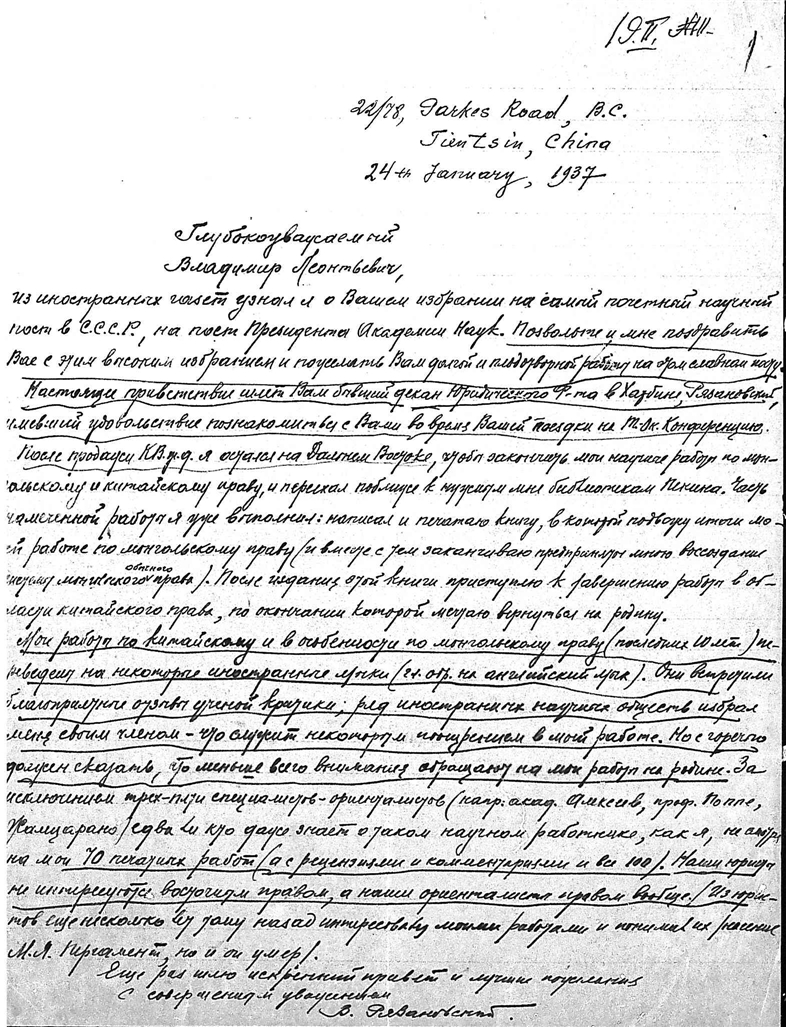 19.II.
1
22/78, Parkes Road, B.C.
Tientsin, China
24th January, 1937
Глубокоуважаемый
Владимир Леонтьевич,
из иностранных газет узнал я о Вашем избрании на самый почетный научный
пост в С.С.С.Р., на пост Президента Академии Наук. Позвольте и мне поздравить
Вас с этим высоким избранием и пожелать Вам долгой и плодотворной работы на этом славном посту.
Настоящее приветствие шлет Вам бывший декан Юридического Ф-та в Харбине, Рязановский,
имевший удовольствие познакомиться с Вами во время Вашей поездки на Т.-Ок. Конференцию.
После продажи К.В.ж.д. я остался на Дальнем Востоке, чтобы закончить мои научные работы по мон-
гольскому и китайскому праву, и переехал поближе к нужным мне библиотекам Пекина. Часть
намеченной работы я уже выполнил: написал и печатаю книгу, в которой подвожу итоги мо-
ей работе по монгольскому праву (и вместе с тем заканчиваю предпринятое мною воссоздание
монгольского обычного права). После издания этой книги приступлю к завершению работ в об-
ласти китайского права, по окончании которой мечтаю вернуться на родину.
Мои работы по китайскому и в особенности по монгольскому праву (последних 10 лет) пе-
реведены на некоторые иностранные языки (гл. обр. на английский язык). Они встретили
благоприятные отзывы ученой критики; ряд иностранных научных обществ избрал
меня своим членом – что служит некоторым поощрением в моей работе. Но с горечью
должен сказать, что меньше всего внимания обращают на мои работы на родине. За
исключением трех-пяти специалистов-ориенталистов (напр: акад. Алексеев, проф. Поппе,
Жамцарано) едва ли кто даже знает о таком научном работнике, как я, не смотря
на мои 70 печатных работ (а с рецензиями и комментариями и все 100). Наши юристы
не интересуются восточным правом, а наши ориенталисты правом вообще. (Из юрис-
тов еще несколько лет тому назад интересовался моими работами и понимал их значение
М.Я. Пергамент, но и он умер).
Еще раз шлю искренний привет и лучшие пожелания
С совершенным уважением
В. Рязановский.